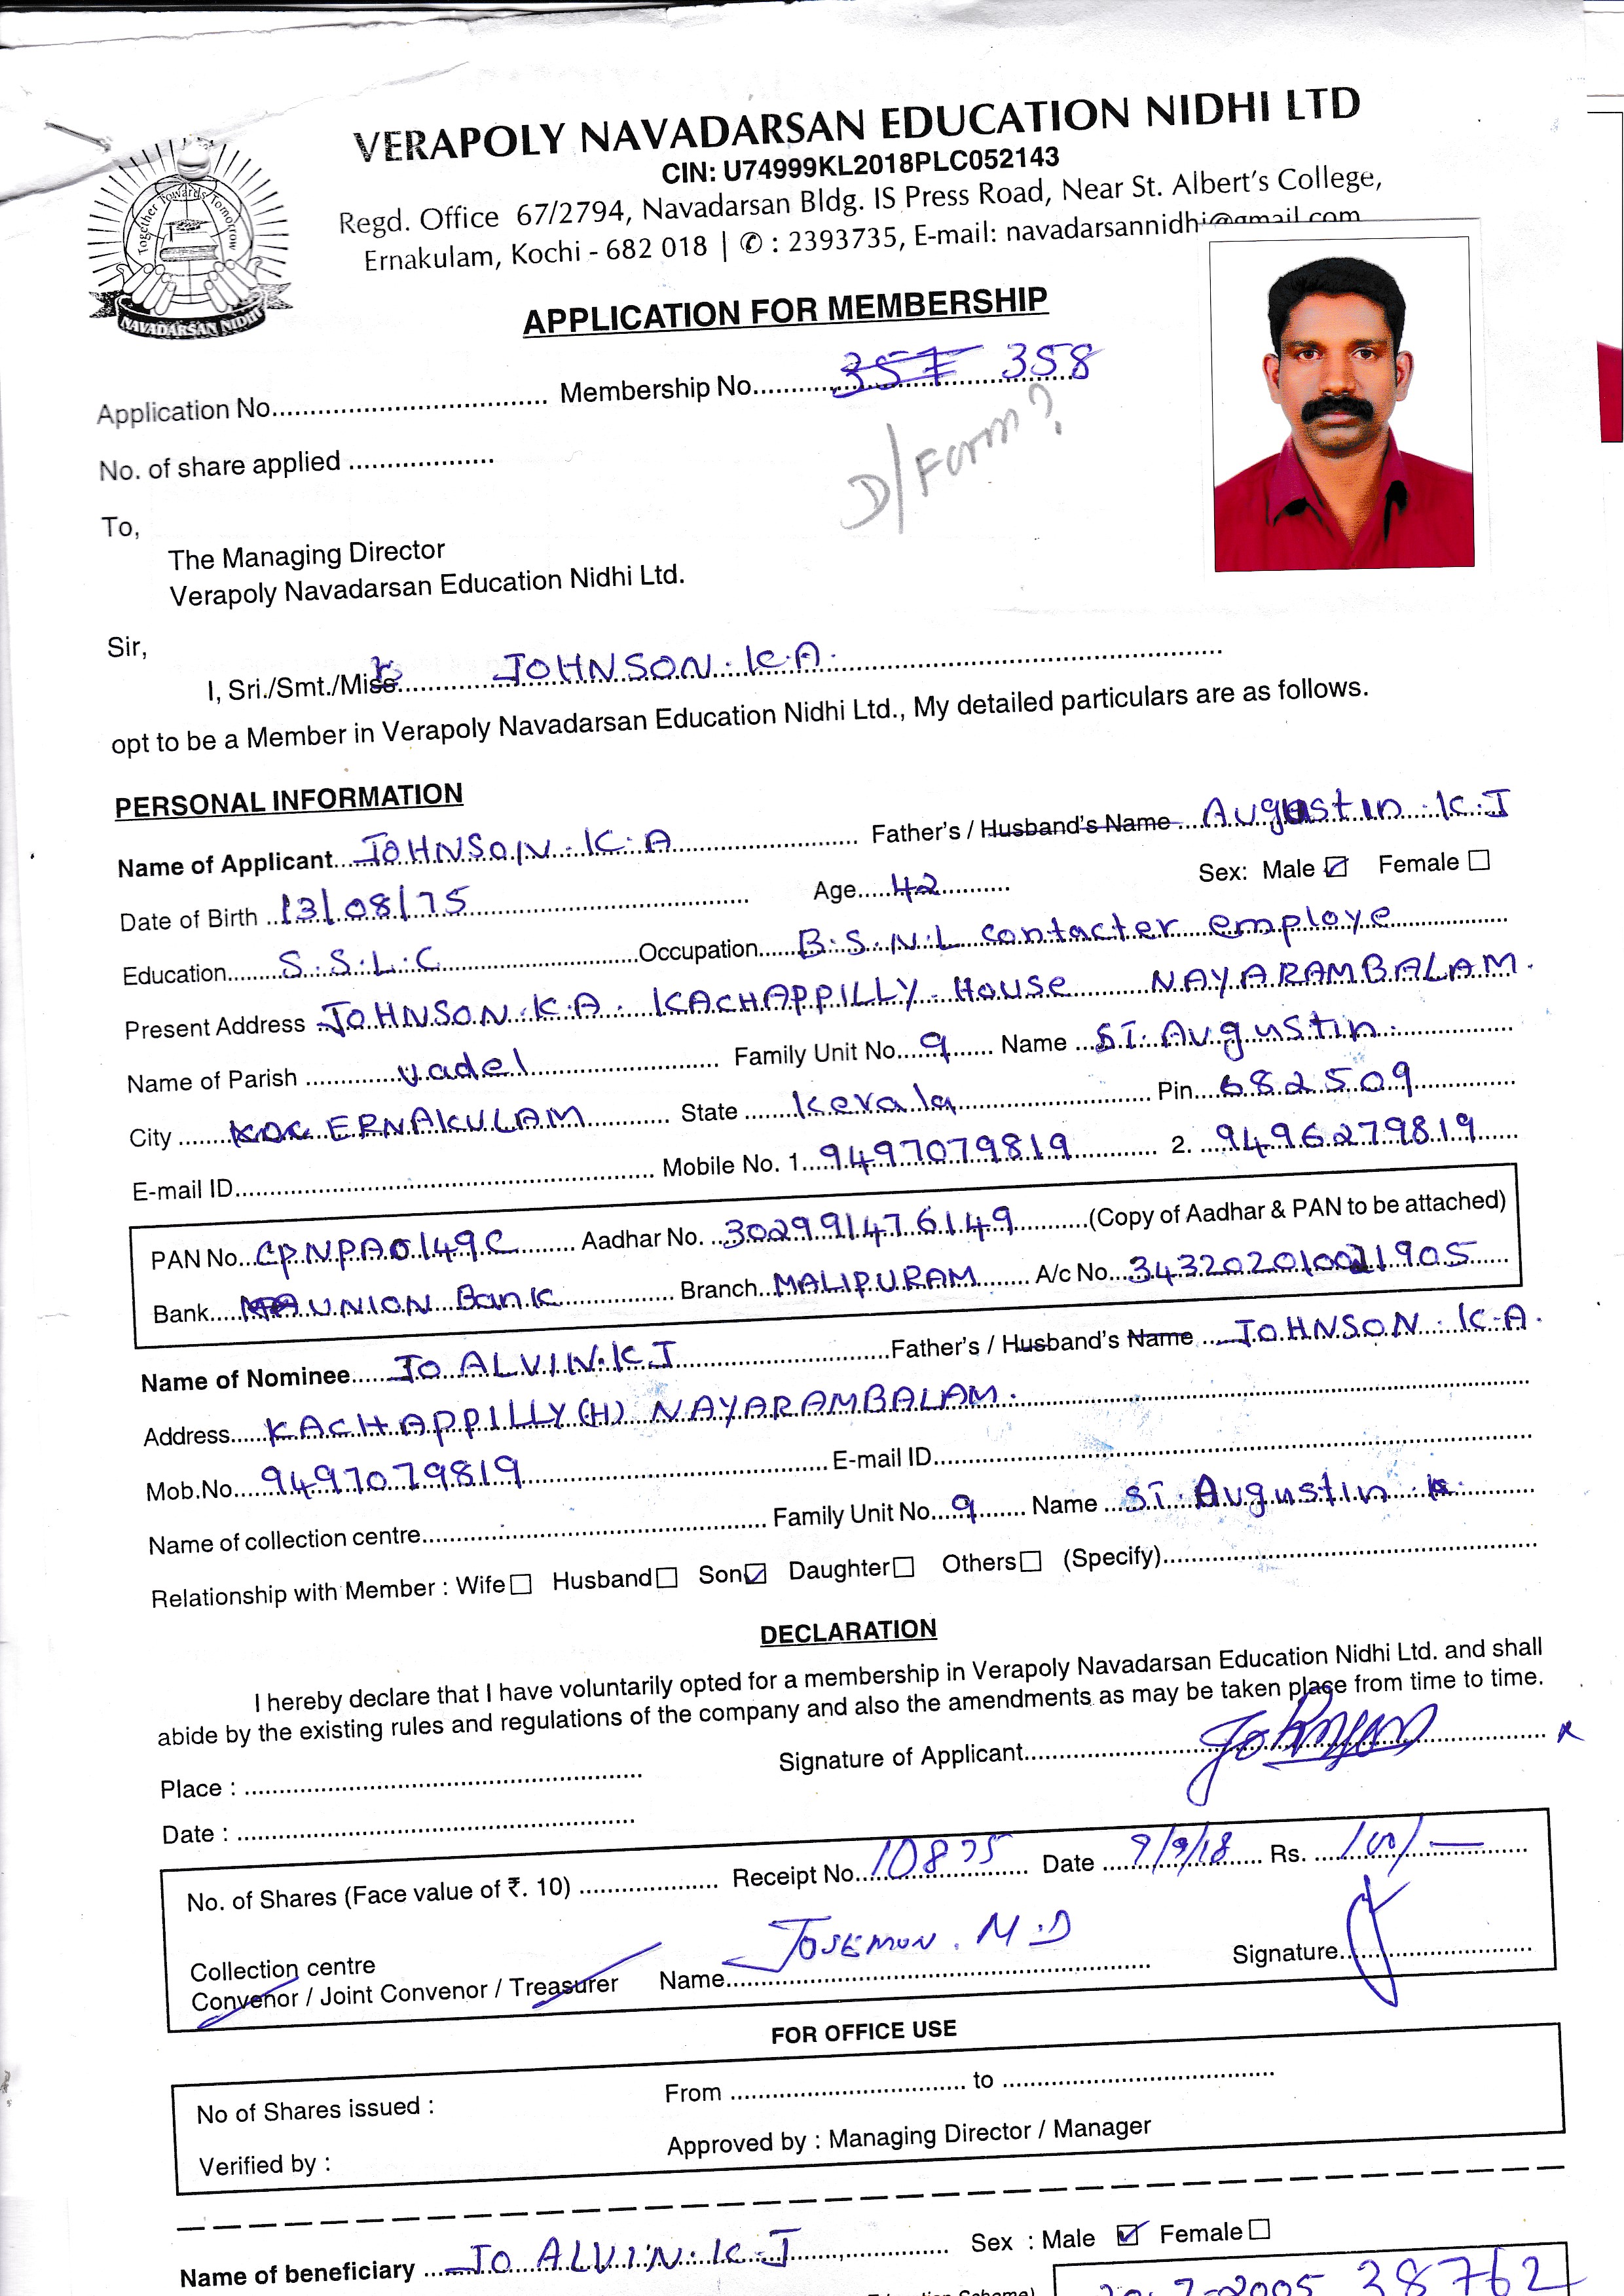 VERAPOLY NAVADARSAN EDUCATION NIDHI LTD
CIN: U74999KL2018PLC052143
Regd. Office 67/2794, Navadarsan Bldg. IS Press Road, Near St. Albert's College,
Ernakulam, Kochi - 682 018 | ✆ : 2393735, E-mail: navadarsannidhi@gmail.com
Together Towards Tomorrow
NAVADARSAN NIDHI
APPLICATION FOR MEMBERSHIP
Application No. Membership No. 357 358
No. of share applied
D/Form?
To,
The Managing Director
Verapoly Navadarsan Education Nidhi Ltd.
Sir,
I, Sri./Smt./Miss JOHNSON. K.A.
opt to be a Member in Verapoly Navadarsan Education Nidhi Ltd., My detailed particulars are as follows.
PERSONAL INFORMATION
Name of Applicant JOHNSON. K. A Father's / Husband's Name Augustin K.J
Date of Birth 13/08/75 Age 42 Sex: Male ☑ Female ☐
Education S.S.L.C Occupation B.S.N.L contacter employe
Present Address JOHNSON. K.A. KACHAPPILLY House NAYARAMBALAM.
Name of Parish vadel Family Unit No. 9 Name ST. Augustin.
City ERNAKULAM State Kerala Pin 682509
E-mail ID Mobile No. 1. 9497079819 2. 9496279819
PAN No. CPNPA0149C Aadhar No. 302991476149 (Copy of Aadhar & PAN to be attached)
Bank UNION Bank Branch MALIPURAM A/c No. 343202010021905
Name of Nominee JO ALVIN. K J Father's / Husband's Name JOHNSON. K.A.
Address KACHAPPILLY (H) NAYARAMBALAM.
Mob.No. 9497079819 E-mail ID
Name of collection centre Family Unit No. 9 Name ST. Augustin
Relationship with Member : Wife ☐ Husband ☐ Son ☑ Daughter ☐ Others ☐ (Specify)
DECLARATION
I hereby declare that I have voluntarily opted for a membership in Verapoly Navadarsan Education Nidhi Ltd. and shall
abide by the existing rules and regulations of the company and also the amendments as may be taken place from time to time.
Signature of Applicant Johnson
Place :
Date :
No. of Shares (Face value of ₹. 10) Receipt No. 10875 Date 9/9/18 Rs. 100/-
Collection centre
Convenor / Joint Convenor / Treasurer Name JOSEMON. M.D Signature
FOR OFFICE USE
No of Shares issued : From to
Verified by : Approved by : Managing Director / Manager
Name of beneficiary JO ALVIN. K. J Sex : Male ☑ Female ☐
38762